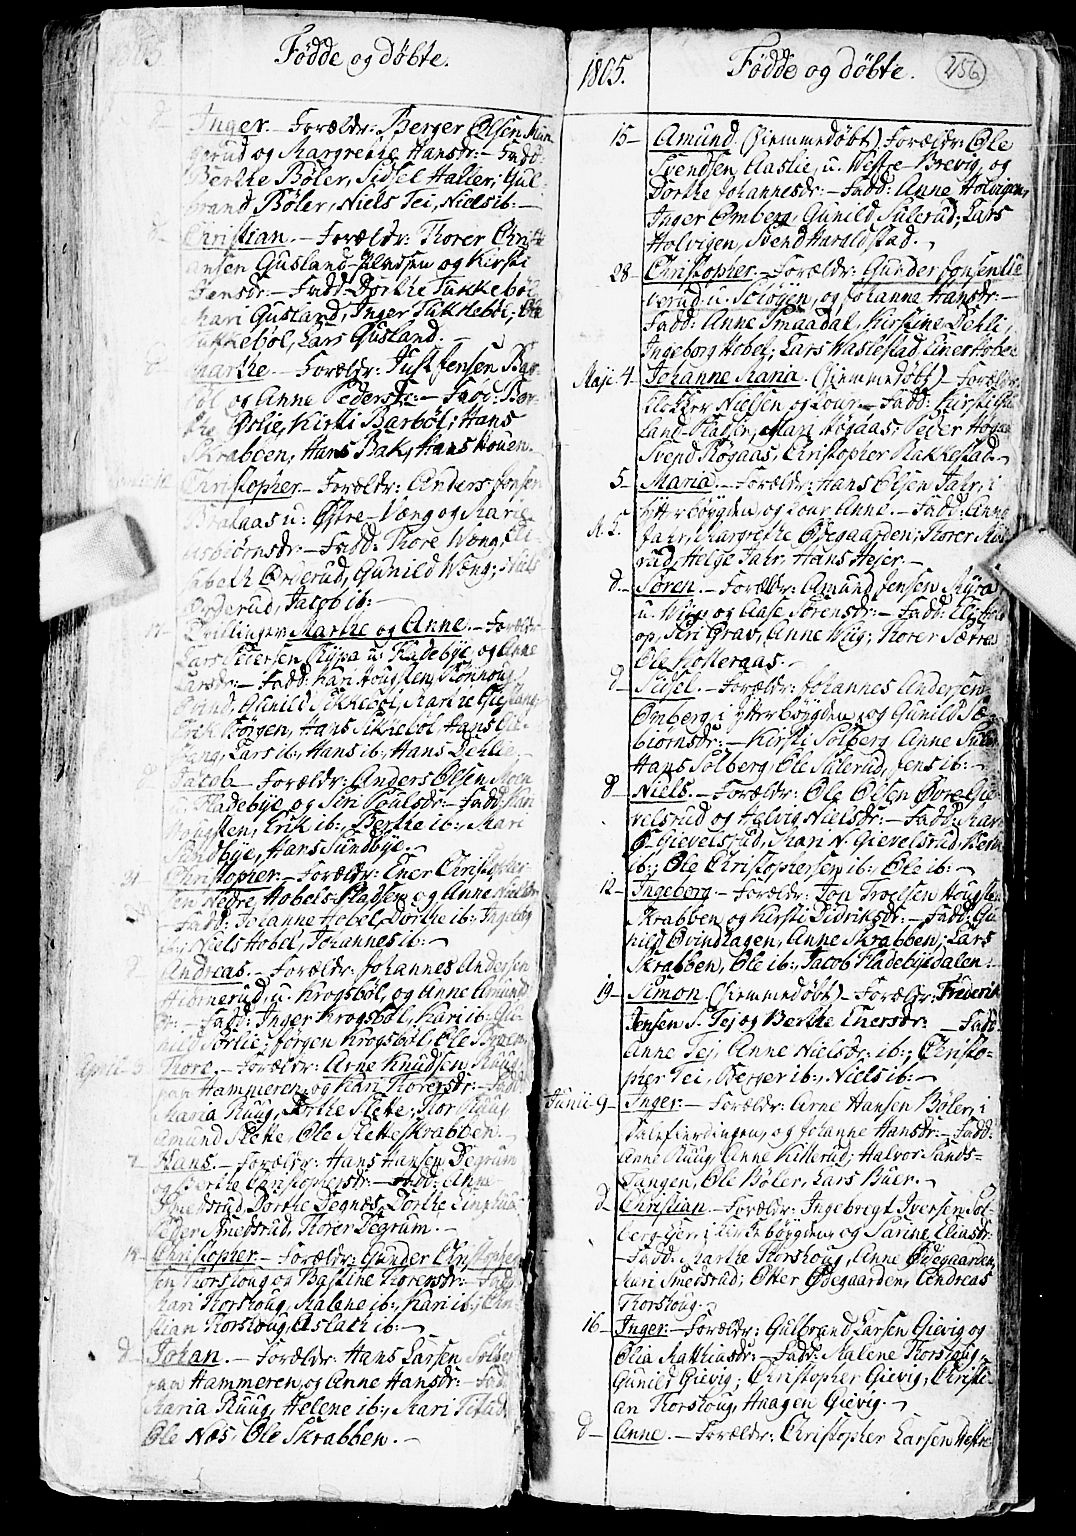 Fødde og døbte.
d - Inger. - Forældr: Berger Olsen
og Margrethe Hansdr: - Fadd:
Berthe Bøler, Sidsel Haller; Gul
brand Bøler, Niels Tei, Niels ib: -
d - Christian. - Forældr: Thorer Christi
ansen Gusland-Pladsen og Kirsti
Hansdr: - Fadd: Dorthe Tukkebøl
Kari Gusland, Inger Tukkebøl;
Lars Gusland.
d - Marthe. - Forældr: Just Jensen Bar
bøl og Anne Pedersdr: - Fadd: Ber
the Kirsti Barbøl; Hans
Skraben, Hans Bak, Hans Houen.
Christopher. - Forældr: Anders Jensen
Braraas u: Østre-Wæng og Marie
Asbiørnsdr: - Fadd: Thore Wæng, Eli-
sabeth Orderud, Gunild Wæng; Niels
Orderud, Jacob ib: -
Tvillinger Marthe og Anne. - Forældr:
Lars Pedersen Rypa u: Kladebye og Anne
Larsdr: - Fadd: Kari Hougsten, Rønnoug
Gunild Sikkebøl, Marthe
Erik Hans Sikkebøl, Hans
Lars ib:, Hans ib:, Hans Dehlie.
d Jacob - Forældr: Anders Olsen Moen
u: Kladebye og Siri Poulsdr: - Fadd: Kari
Hougsten, Erik ib:, Berthe ib:, Mari
Sundbye, Hans Sundbye. -
21 - Christopher. - Forældr: Ener Christopher
sen Nedre Hobels-Pladsen og Anne Nielsdr:
- Fadd: Johanne Hobel, Dorthe ib: Ingebor
ib:, Niels Hobel, Johannes ib: -
d - Andreas. - Forældr: Johannes Andersen
u: Krogsbøl, og Anne Amund
dr: - Fadd: Inger Krogsbøl, Kari ib: Gu-
nild Sørlie; Jørgen Krogsbøl, Ole
April 5 Thore. - Forældr: Arne Knudsen Ruug
paa Hammeren og Kari Thorersdr: - Fadd:
Maria Ruug, Dorthe Slette; Thor Ruug,
Amund Slette, Ole Sletteskrabben. -
7 - Hans. - Forældr: Hans Hansen Degrum
og Berthe Christophersdr: - Fadd: Anne
Smedsrud, Dorthe Degnæs, Dorthe
Peder Smedsrud, Thorer Degrum. -
15 - Christopher. - Forældr: Gunder Christopher
sen Thorshoug og Bastine Thorersdr: - Fadd:
Mari Thorshoug, Malene ib:, Kari ib:; Chri-
stian Thorshoug, Aslach ib: -
d - Johan. - Forældr: Hans Larsen
paa Hammeren og Anne Hansdr: - Fadd:
Maria Ruug, Helene ib:, Mari
Ole Næs, Ole Skrabben. -
1805.
Fødde og døbte.
256
15 - Amund. (hiemmedøbt) Forældr: Ole
Svendsen Aaslie, u: Westre-Brevig, og
Dorthe Johannesdr: - Fadd: Anne Holvigen,
Inger Omberg, Gunild Sulerud; Lars
Holvigen, Svend Haraldstad. -
28 - Christopher. - Forældr: Gunder Jensen Lie
verud u: Soløyen, og Johanne Hansdr: -
Fadd: Anne Smaadal, Kirstine Dehli,
Ingeborg Hobel; Lars Haslestad Einer Hobel
Maji 4. Johanne Maria. (hiemmedøbt) - Forældr:
Klokker Nielsen og Kone. - Fadd:
land-Pladsen, Mari Høgaas; Peder Høgaas
Svend Høgaas, Christopher Rakkestad. -
5 - Maria. - Forældr: Hans Olsen Jahr, i
Yttre bøygden og Kone Anne. - Fadd: Anne
Jahr, Margrethe Ødegaarden; Thorer
rud, Helge Jahr, Hans Hejer. -
d - Søren. - Forældr: Amund Jensen Myra
u: Wiig og Aase Sørensdr: - Fadd:
op, Siri Grav, Anne Wiig; Thorer
Ole Kolleraas. -
d - Sidsel. - Forældr: Johannes Andersen
Omberg i Yttre bøygden, og Gunild Tor
biørnsdr: - Kirsti Solberg, Anne
Hans Solberg, Ole Sulerud, Jens ib: -
d - Niels. - Forældr: Ole Olsen Øvre Gie
velsrud og Helvig Nielsdr: - Fadd: Mari
Ø Gievelsrud, Mari N. Gievelsrud,
ib:; Ole Christophersen ib:, Ole ib: -
12 - Ingeborg - Forældr: Jon Troelsen Hougsten
Skrabben og Kirsti Didriksdr: - Fadd: Gu
nild Øvindhagen, Anne Skrabben; Lars
Skrabben, Ole ib:, Jacob Kladebyesalen.
19 - Simon (hiemmedøbt) - Forældr: Frederik
Jensen S. Tej og Berthe Enersdr: - Fadd:
Anne Tej, Anne Nielsdr: ib:; Christo-
pher Tei, Berger ib:, Niels ib: -
Junii 9 - Inger. - Forældr: Arne Hansen Bøler, i
og Johanne Hansdr: - Fadd:
Anne Ruug, Anne Killerud; Halvor Sands-
Tangen, Ole Bøler, Lars Buer. -
d - Christian. - Forældr: Ingebregt Iversen Sol
berg Eier, i bøygden og Karine Eliasdr:
- Fadd: Marthe Thorshoug, Anne Ødegaarden,
Mari Smedsrud; Otter Ødegaarden, Andreas
Thorshoug. -
16 - Inger. - Forældr: Gulbrand Larsen Gievig og
Olia Mathiasdr: - Fadd: Malene Thorshoug,
Gunild Gievig; Christopher Gievig, Christi-
an Thorshoug, Haagen Gievig. -
d - Anne. - Forældr: Christopher Larsen Westre